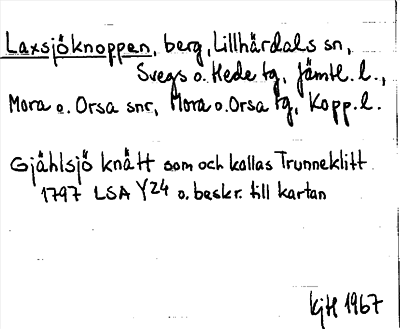 Laxsjöknoppen, berg, Lillhärdals sn,
Svegs o. Hede tg, Jämtl. l.,
Mora o. Orsa snr, Mora o. Orsa tg, Kopp. l.
Gjåhlsjö knått som och kallas Trunneklitt
1797 LSA Y24 o. beskr. till kartan
KjH 1967